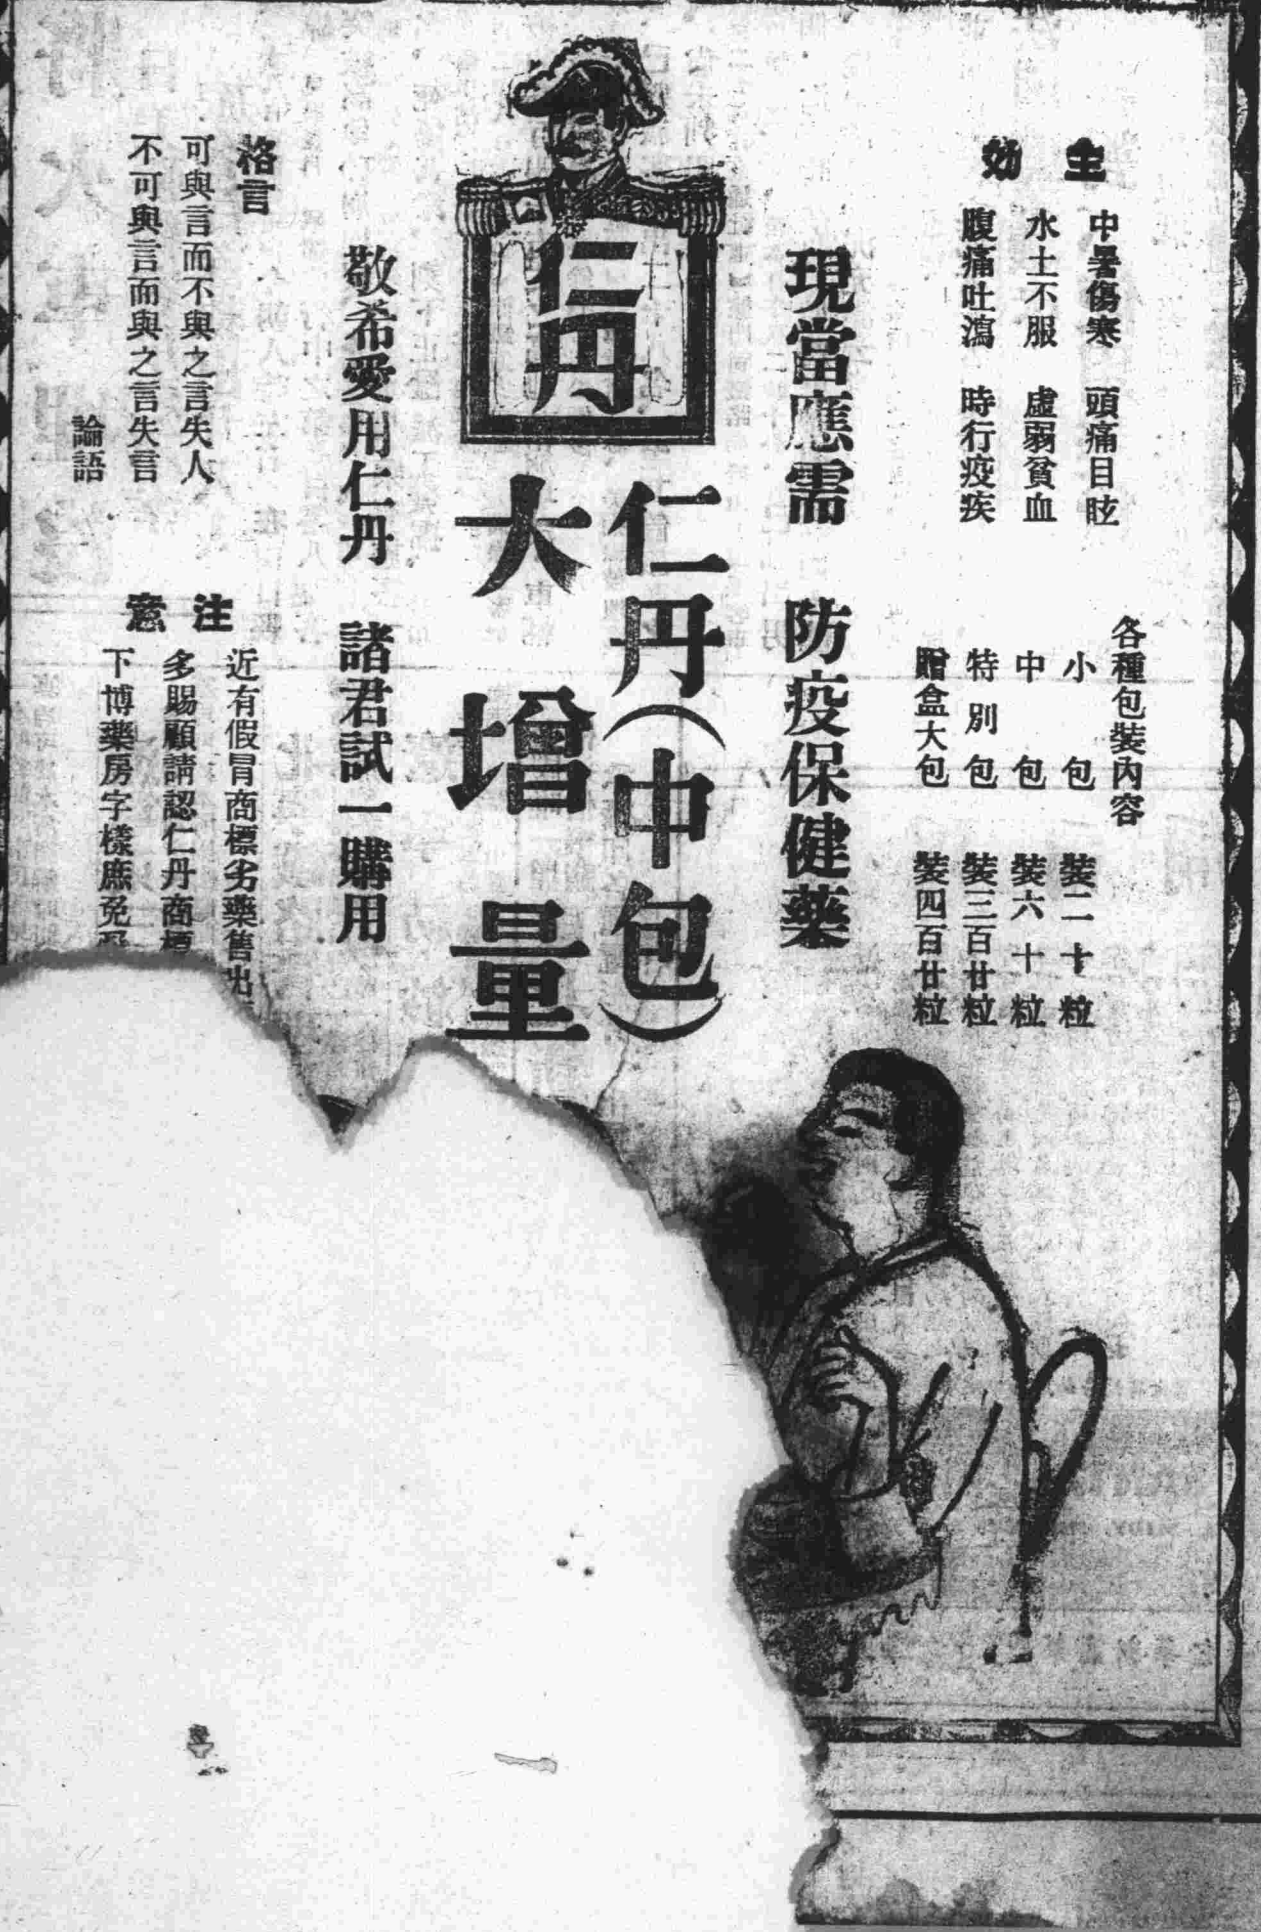 主効
中暑傷寒 頭痛目眩
水土不服 虛弱貧血
腹痛吐瀉 時行疫疾
各種包裝內容
小包 裝二十粒
中包 裝六十粒
特別包 裝三百廿粒
贈盒大包 裝四百廿粒
現當應需 防疫保健藥
仁丹
仁丹(中包)
大增量
敬希愛用仁丹 諸君試一購用
格言
可與言而不與之言失人
不可與言而與之言失言
論語
注意
近有假冒商標劣藥售出
多賜顧請認仁丹商標
下博藥房字樣庶免